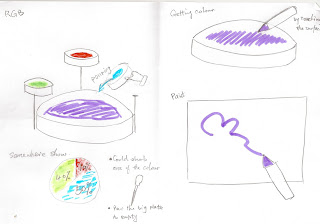 RGB
pouring
Somewhere show
40%
10%
50%
• Could absorb
one of the colour
• Pour the big plate
to empty
Getting colour
by touching
the surface
Paint